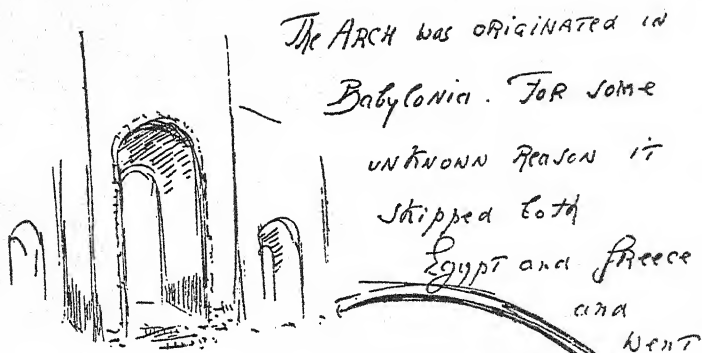 The ARCH was ORiGiNATed iN
BabyloNia. FOR some
UNKNOWN Reason iT
skipped both
EgypT and GReece
and
wenT